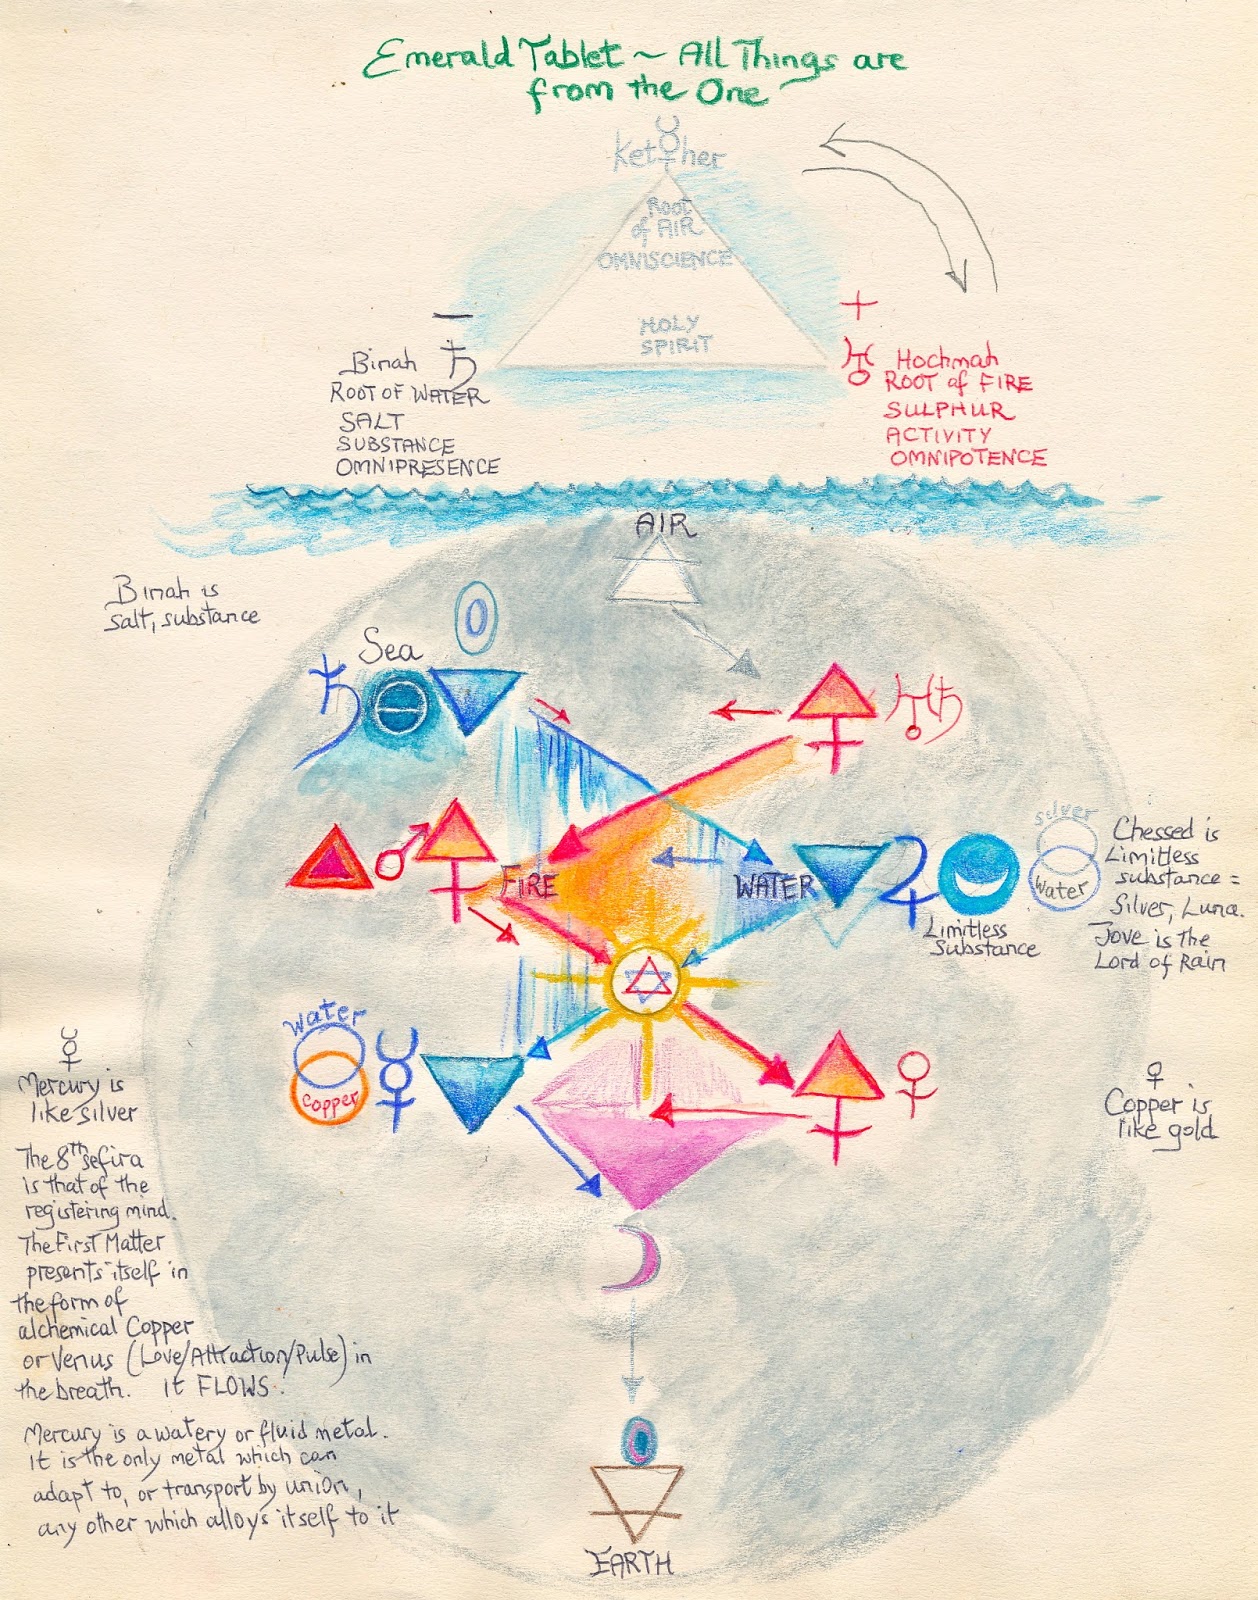 Emerald Tablet ~ All Things are
from the One
Ket her
Root
of AIR
OMNISCIENCE
HOLY
SPIRIT
Binah
ROOT OF WATER
SALT
SUBSTANCE
OMNIPRESENCE
Hochmah
ROOT of FIRE
SULPHUR
ACTIVITY
OMNIPOTENCE
AIR
Binah is
salt, substance
Sea
FIRE
WATER
Limitless
Substance
silver
Water
Chessed is
Limitless
substance =
Silver, Luna.
Jove is the
Lord of Rain
water
copper
Mercury is
like silver
The 8th sefira
is that of the
registering mind.
The First Matter
presents itself in
the form of
alchemical Copper
or Venus (Love/Attraction/Pulse) in
the breath. It FLOWS.
Mercury is a watery or fluid metal.
It is the only metal which can
adapt to, or transport by union,
any other which alloys itself to it
Copper is
like gold
EARTH